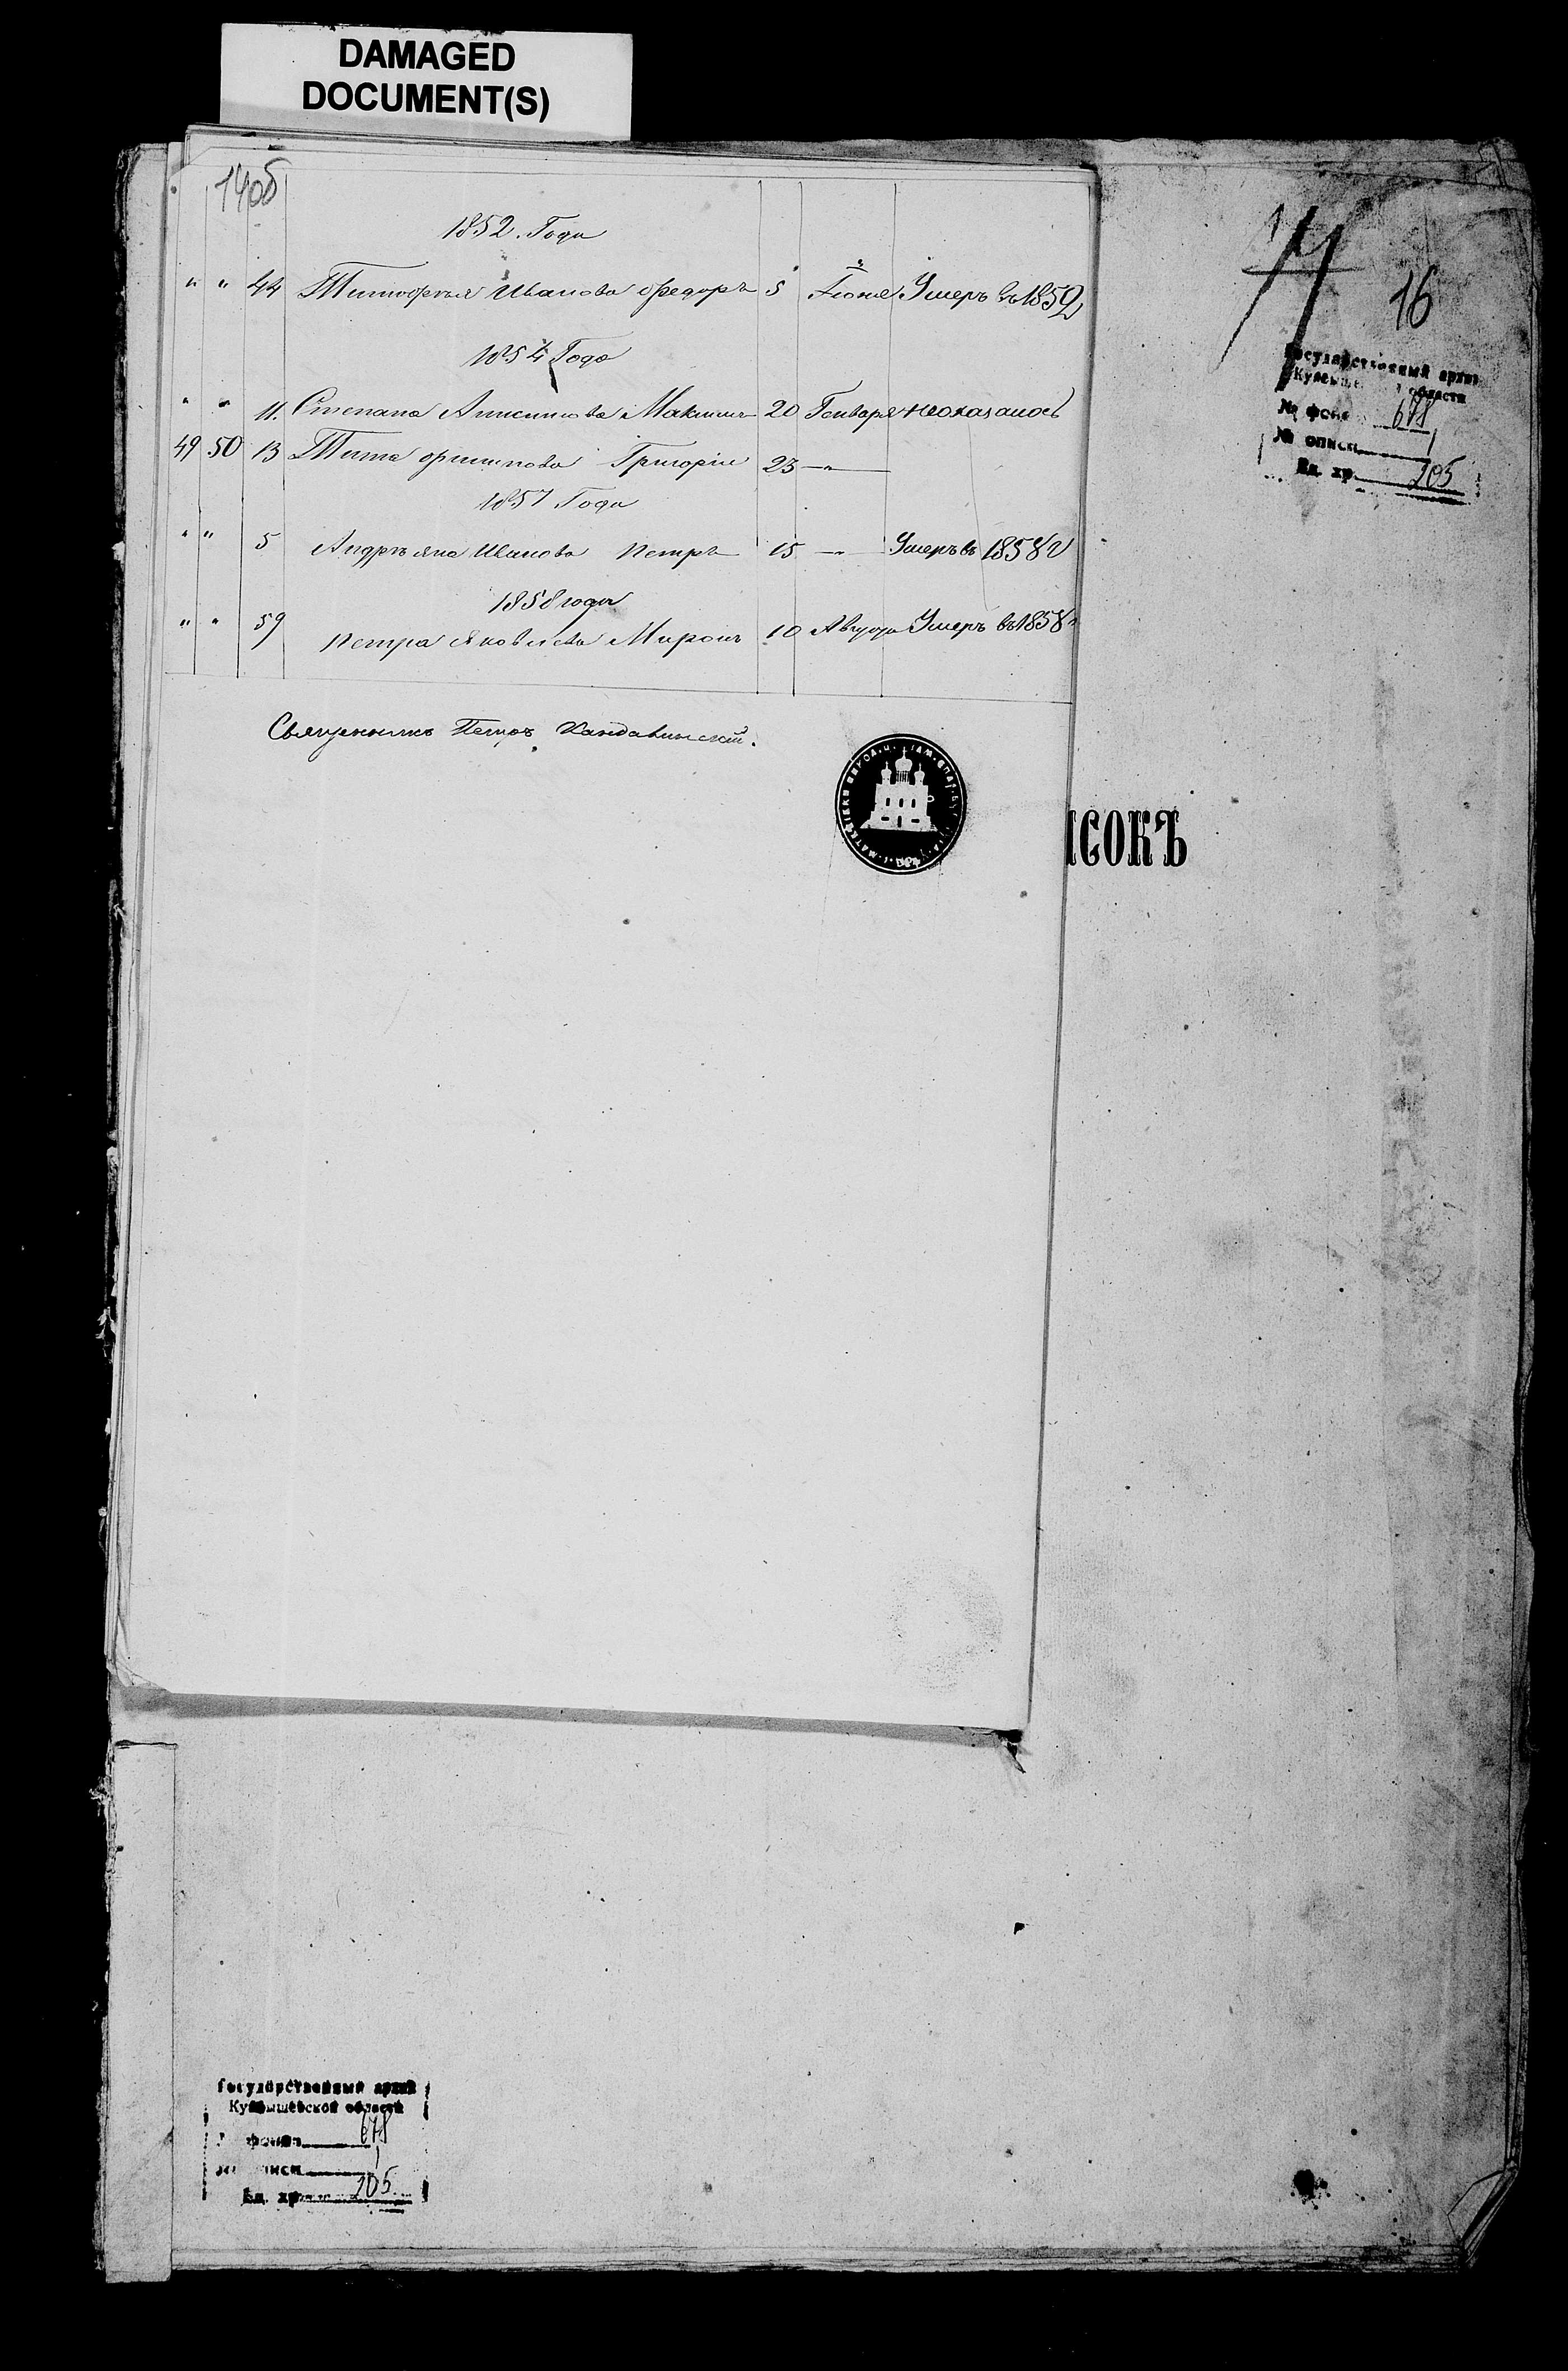 DAMAGED
DOCUMENT(S)
1852. Года
" " 44 Тимофѣя Иванова Федоръ 5 Іюня Умеръ въ 1852
1854 Года
" " 11. Степана Анисимова Максимъ 20 Генваря неоказалось
49 50 13 Тита Григорій 23 —"—
1857 Года
" " 5 Андреяна Иванова Петръ 15 —"— Умеръ въ 1858 г
1858 года
" " 59 Петра Яковлева Миронъ 10 Августа Умеръ въ 1858 г
Священникъ Петръ Кандалинскій.
16
Государственный архив
Куйбышевской области
№ фонд 678
№ описи 1
Ед. хр. 205
ИСОКЪ
Государственный архив
Куйбышевской области
№ фонда 678
№ описи 1
Ед. хр. 205